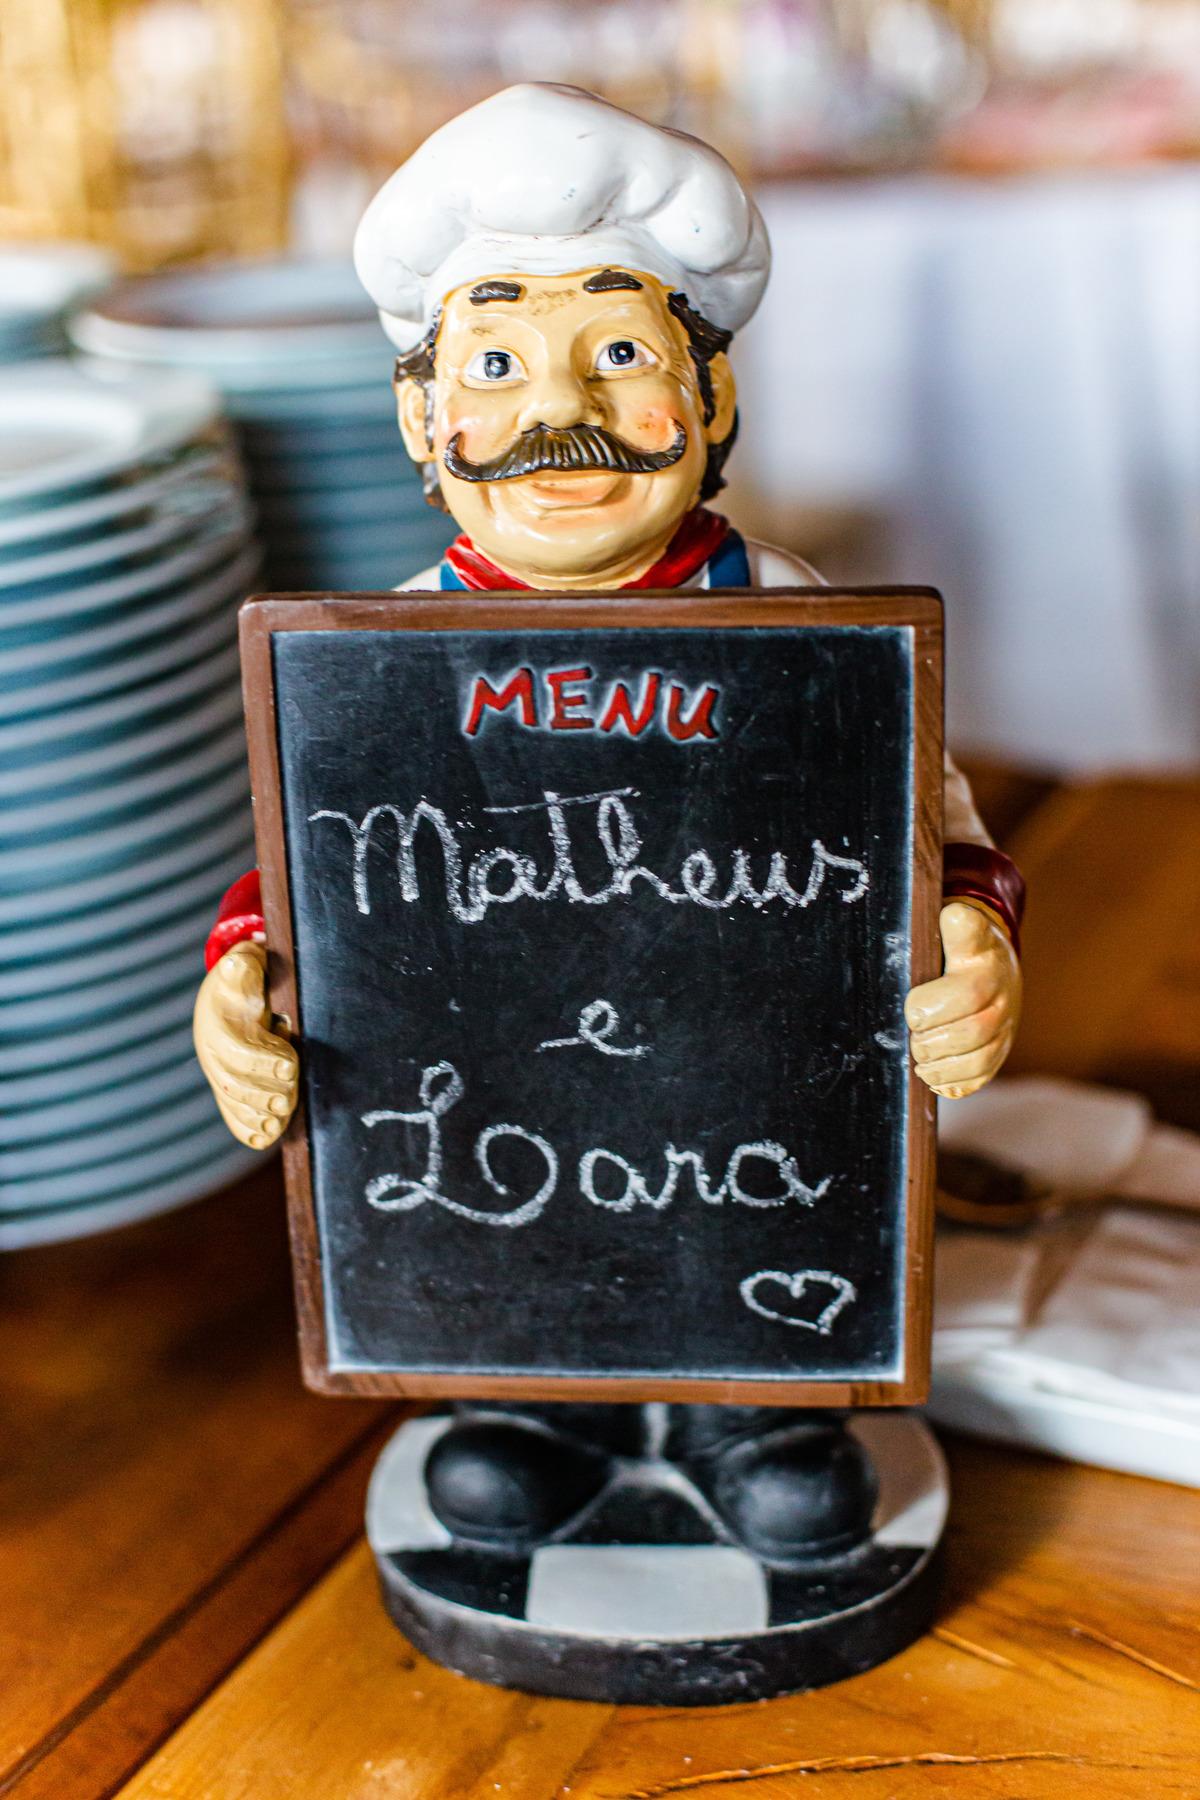 MENU
Matheus
e
Lara